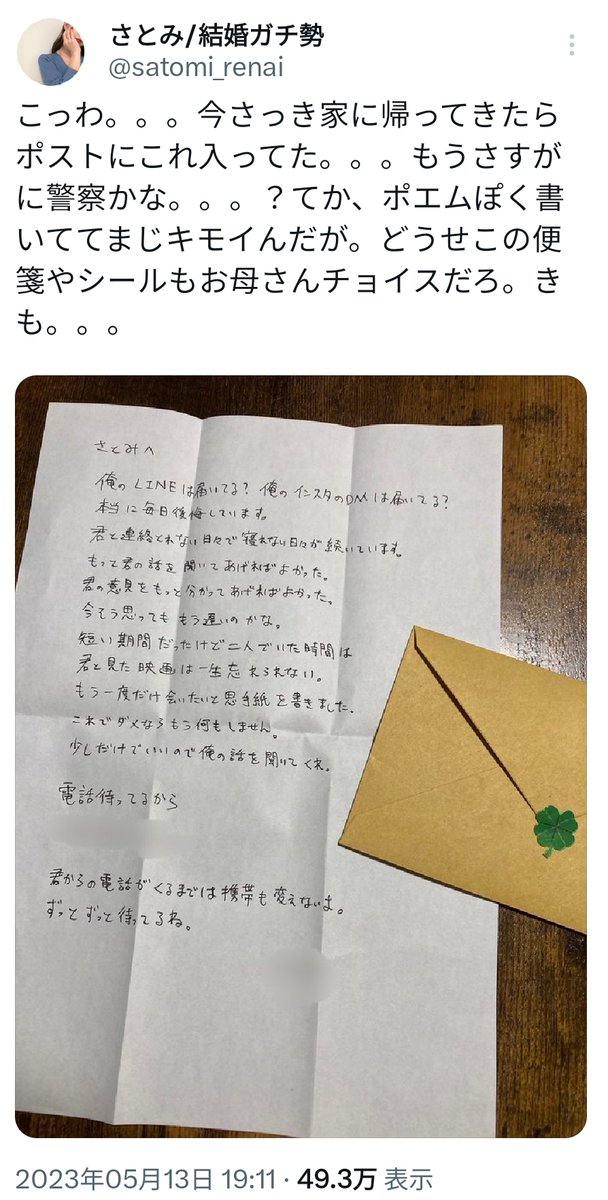 さとみ/結婚ガチ勢
@satomi_renai
こっわ。。。今さっき家に帰ってきたら
ポストにこれ入ってた。。。もうさすが
に警察かな。。。？てか、ポエムぽく書
いててまじキモイんだが。どうせこの便
箋やシールもお母さんチョイスだろ。き
も。。。
さとみへ
俺のLINEは届いてる？俺のインスタのDMは届いてる？
本当に毎日後悔しています。
君と連絡とれない日々で寝れない日々が続いています。
もって君の話を聞いてあげればよかった。
君の意見をもっと分かってあげればよかった。
今そう思ってももう遅いのかな。
短い期間だったけど二人でいた時間は
君と見た映画は一生忘れられない。
もう一度だけ会いたいと思手紙を書きました。
これでダメならもう何もしません。
少しだけでいいので俺の話を聞いてくれ。
電話待ってるから
君からの電話がくるまでは携帯も変えないよ。
ずっとずっと待ってるね。
2023年05月13日 19:11·49.3万 表示